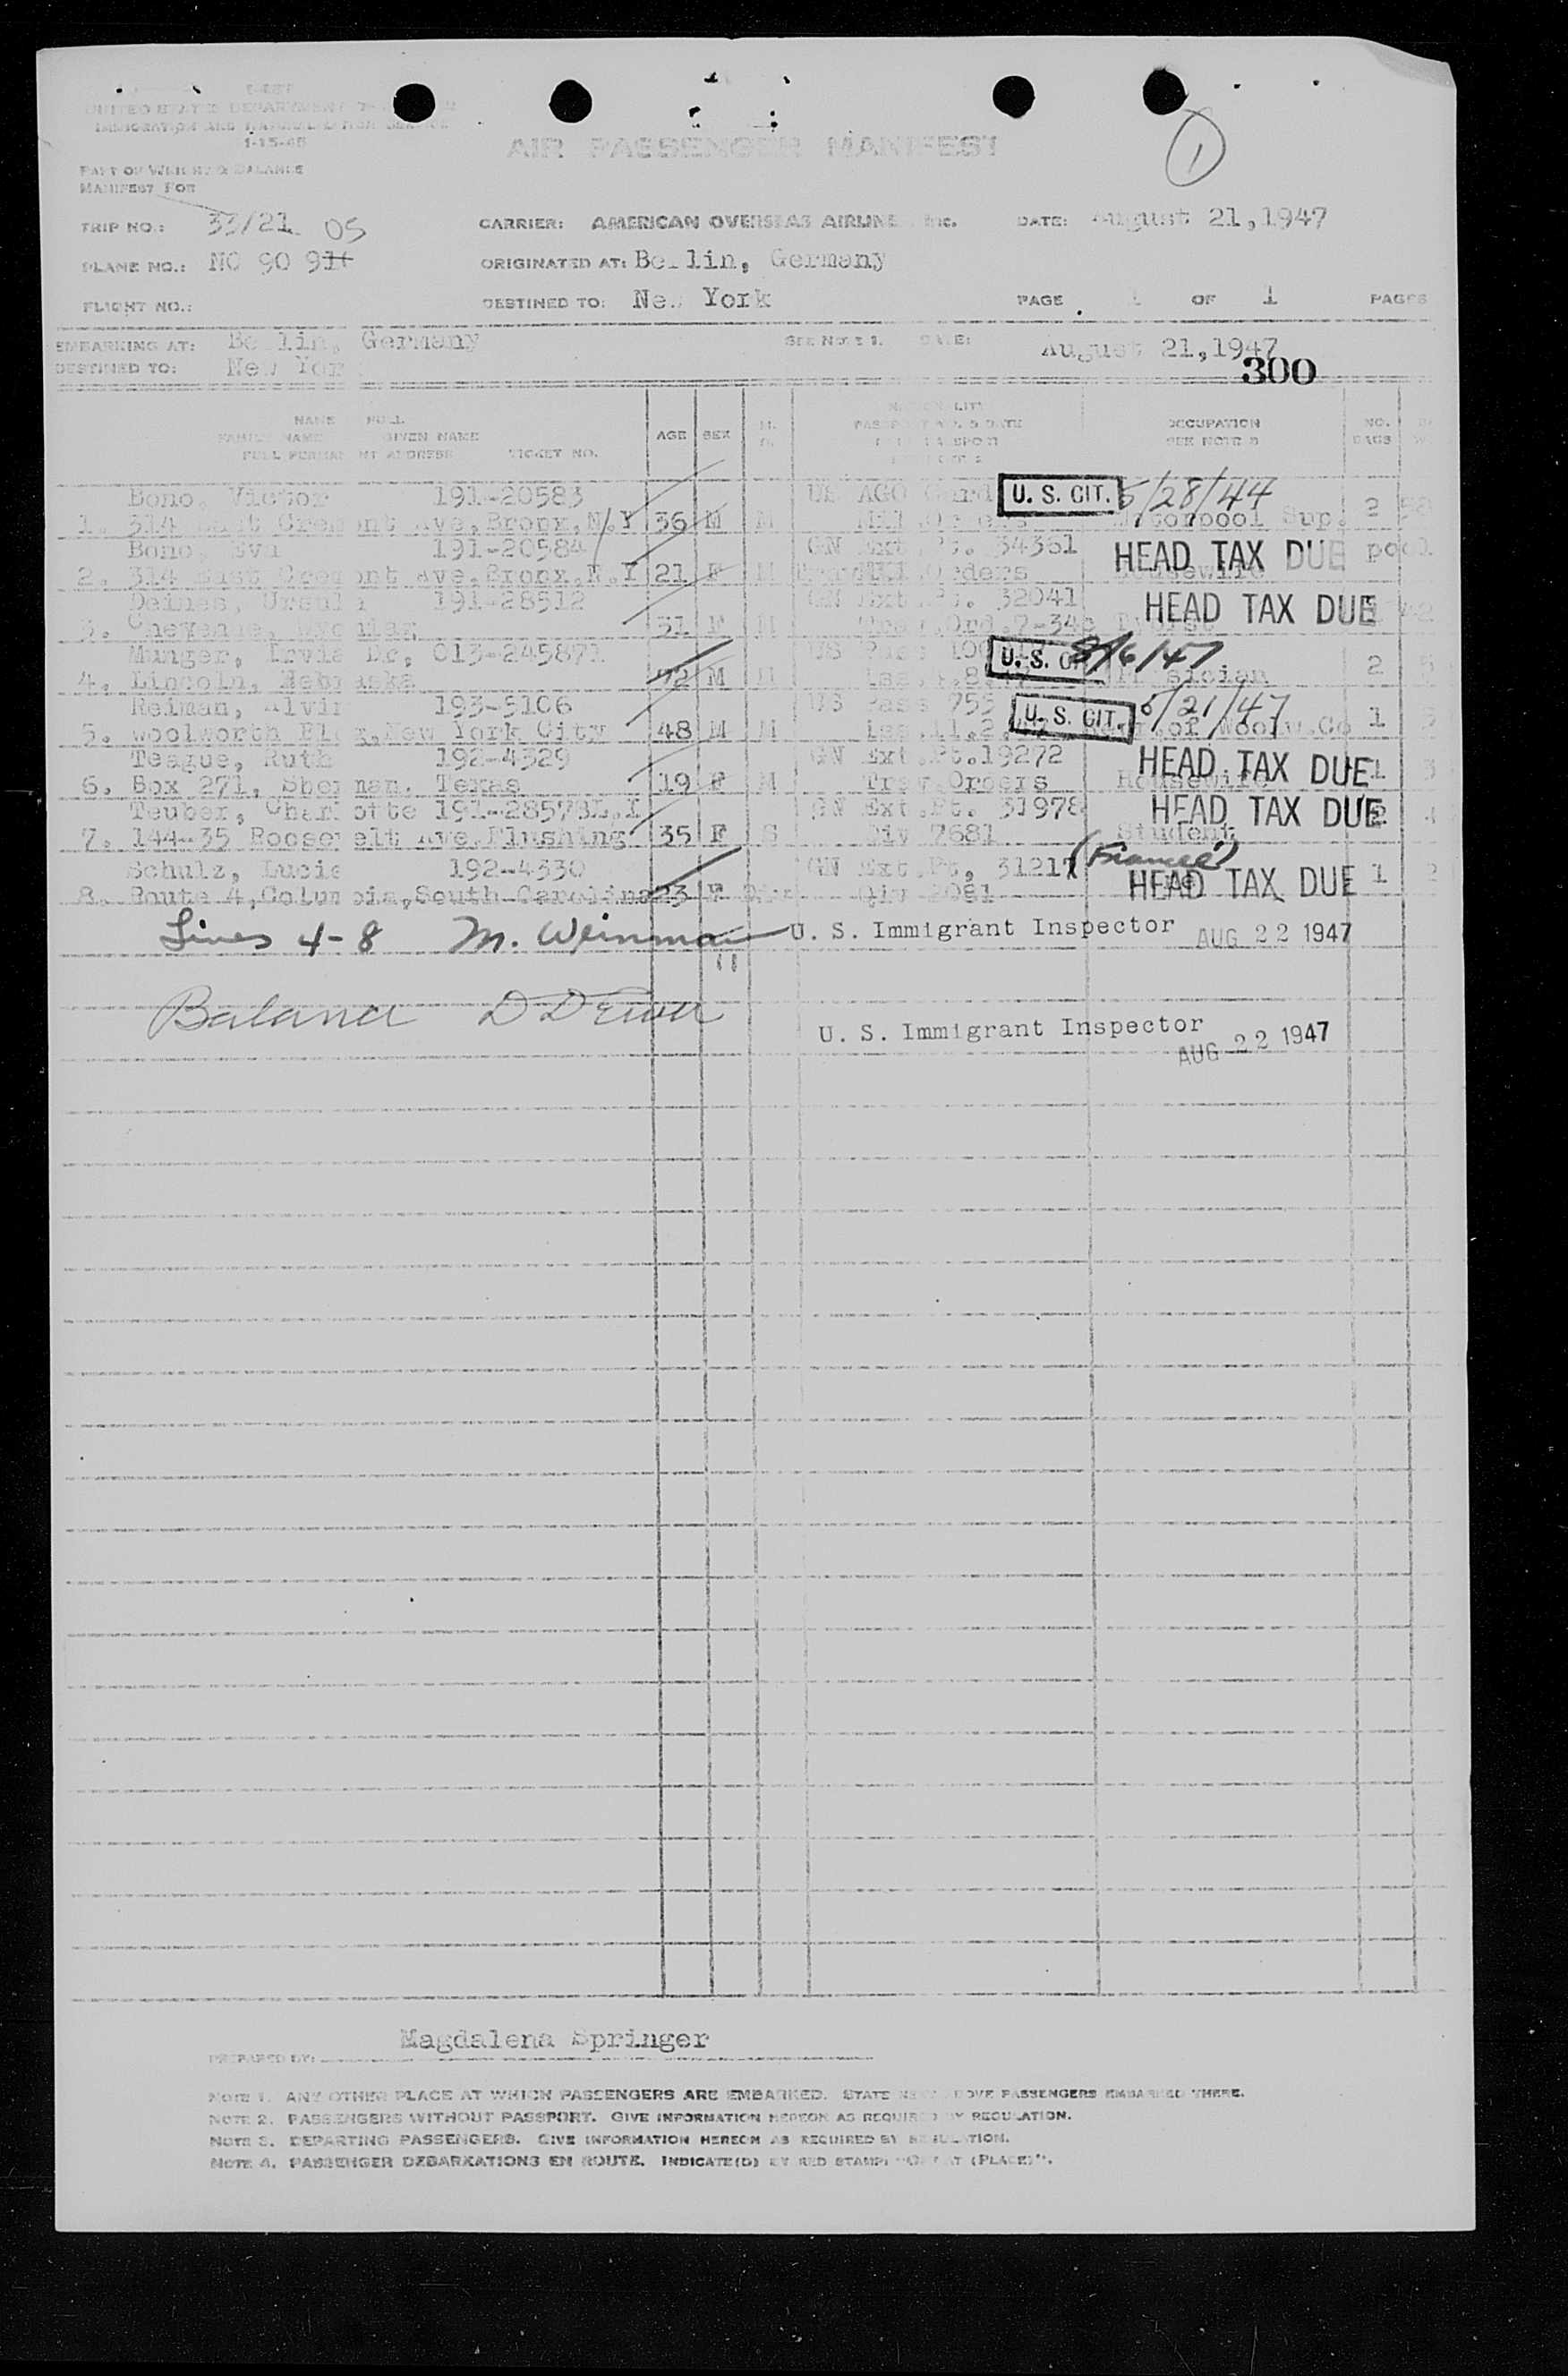 UNITED STATES DEPARTMENT
IMMIGRATION AND NATURALIZATION SERVICE
1-15-45
AIR PASSENGER MANIFEST
1
PART OF WEIGHT & BALANCE
MANIFEST FOR
TRIP NO.: 33/21 OS CARRIER: AMERICAN OVERSEAS AIRLINE Inc. DATE: August 21,1947
PLANE NO.: NC 90 91 ORIGINATED AT: Berlin, Germany
FLIGHT NO.: DESTINED TO: New York PAGE 1 OF 1 PAGES
EMBARKING AT: Berlin, Germany SEE NOTE 1. DATE: August 21,1947
DESTINED TO: New York
300
NAME FULL
FAMILY NAME GIVEN NAME AGE SEX OCCUPATION NO.
FULL PERMANENT ADDRESS TICKET NO. SEE NOTE BAGS
Bono, Victor 191-20583 US AGO Card U. S. CIT. 5/28/44
1. 314 East Cremont Ave,Bronx,N.Y 36 M M Mil Orders Motorpool Sup. 2
Bono, Eva 191-20584 GN Ext.Pt. 34361 HEAD TAX DUE pool
2. 314 East Cremont Ave.Bronx.N.Y 21 F M Orders Housewife
Deines, Ursula 191-28512 GN Ext.Pt. 32041 HEAD TAX DUE
3. Cheyenne, Wyoming 31 F M
Munger, Dr, 013-245871 US Pass U. S. CIT. 8/6/47
4. Lincoln, Nebraska 72 M M Physician 2
Reiman, Alvin 193-5106 US Pass U. S. CIT. 5/21/47
5. Woolworth Bldg,New York City 48 M M of Woolw.Co 1
Teague, Ruth 192-4329 GN Ext.Pt.19272 HEAD TAX DUE
6. Box 271, Sherman, Texas 19 F M Trav.Orders Housewife 1
Teuber, Charlotte 191-28573L.I GN Ext.Pt. 31978 HEAD TAX DUE
7. 144-35 Roosevelt Ave.Flushing 35 F S Div 7681 Student 2
Schulz, Lucie 192-4330 GN Ext.Pt, 31217 (Fiancee)
8. Route 4,Columbia,South Carolina 23 F Div 2081 HEAD TAX DUE 1
Lines 4-8 M. Weinman U. S. Immigrant Inspector AUG 22 1947
Balance U. S. Immigrant Inspector
AUG 22 1947
PREPARED BY: Magdalena Springer
NOTE 1. ANY OTHER PLACE AT WHICH PASSENGERS ARE EMBARKED. STATE NEXT ABOVE PASSENGERS EMBARKED THERE.
NOTE 2. PASSENGERS WITHOUT PASSPORT. GIVE INFORMATION HEREON AS REQUIRED BY REGULATION.
NOTE 3. DEPARTING PASSENGERS. GIVE INFORMATION HEREON AS REQUIRED BY REGULATION.
NOTE 4. PASSENGER DEBARKATIONS EN ROUTE. INDICATE(D) BY RED STAMP: "OFF AT (PLACE)".